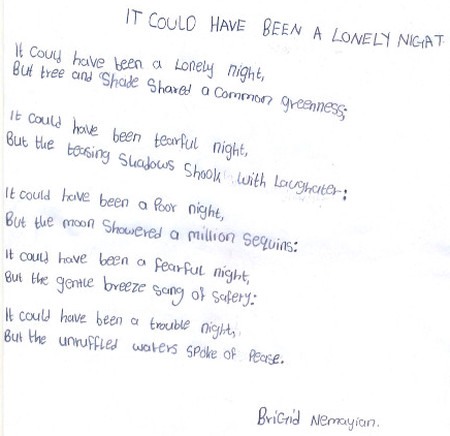 IT COULD HAVE BEEN A LONELY NIGAT
It Could have been a Lonely night,
But tree and Shade Shared a Common greenness;
It could have been tearful night,
But the teasing Shadows Shook with Laughater:
It could have been a Poor night,
But the moon Showered a million Sequins:
It could have been a fearful night,
But the gentle breeze sang of Safery:
It could have been a trouble night,
But the unruffled waters spoke of Pease.
Brigid Nemayian.